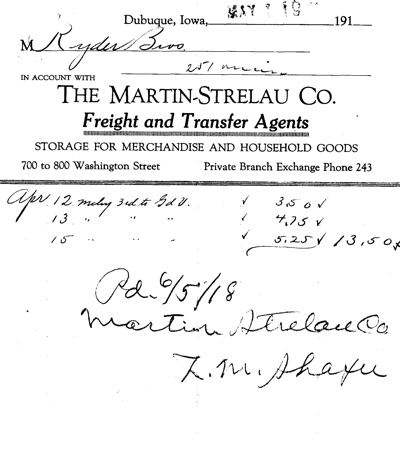 Dubuque, Iowa, MAY 1 19 191
M Ryder Bros.
251 main
IN ACCOUNT WITH
THE MARTIN-STRELAU CO.
Freight and Transfer Agents
STORAGE FOR MERCHANDISE AND HOUSEHOLD GOODS
700 to 800 Washington Street Private Branch Exchange Phone 243
Apr 12 3rd to ✓ 3.50 ✓
13 " " " ✓ 4.75 ✓
15 " " " ✓ 5.25 ✓ 13.50
Pd. 6/5/18
Martin Strelau Co